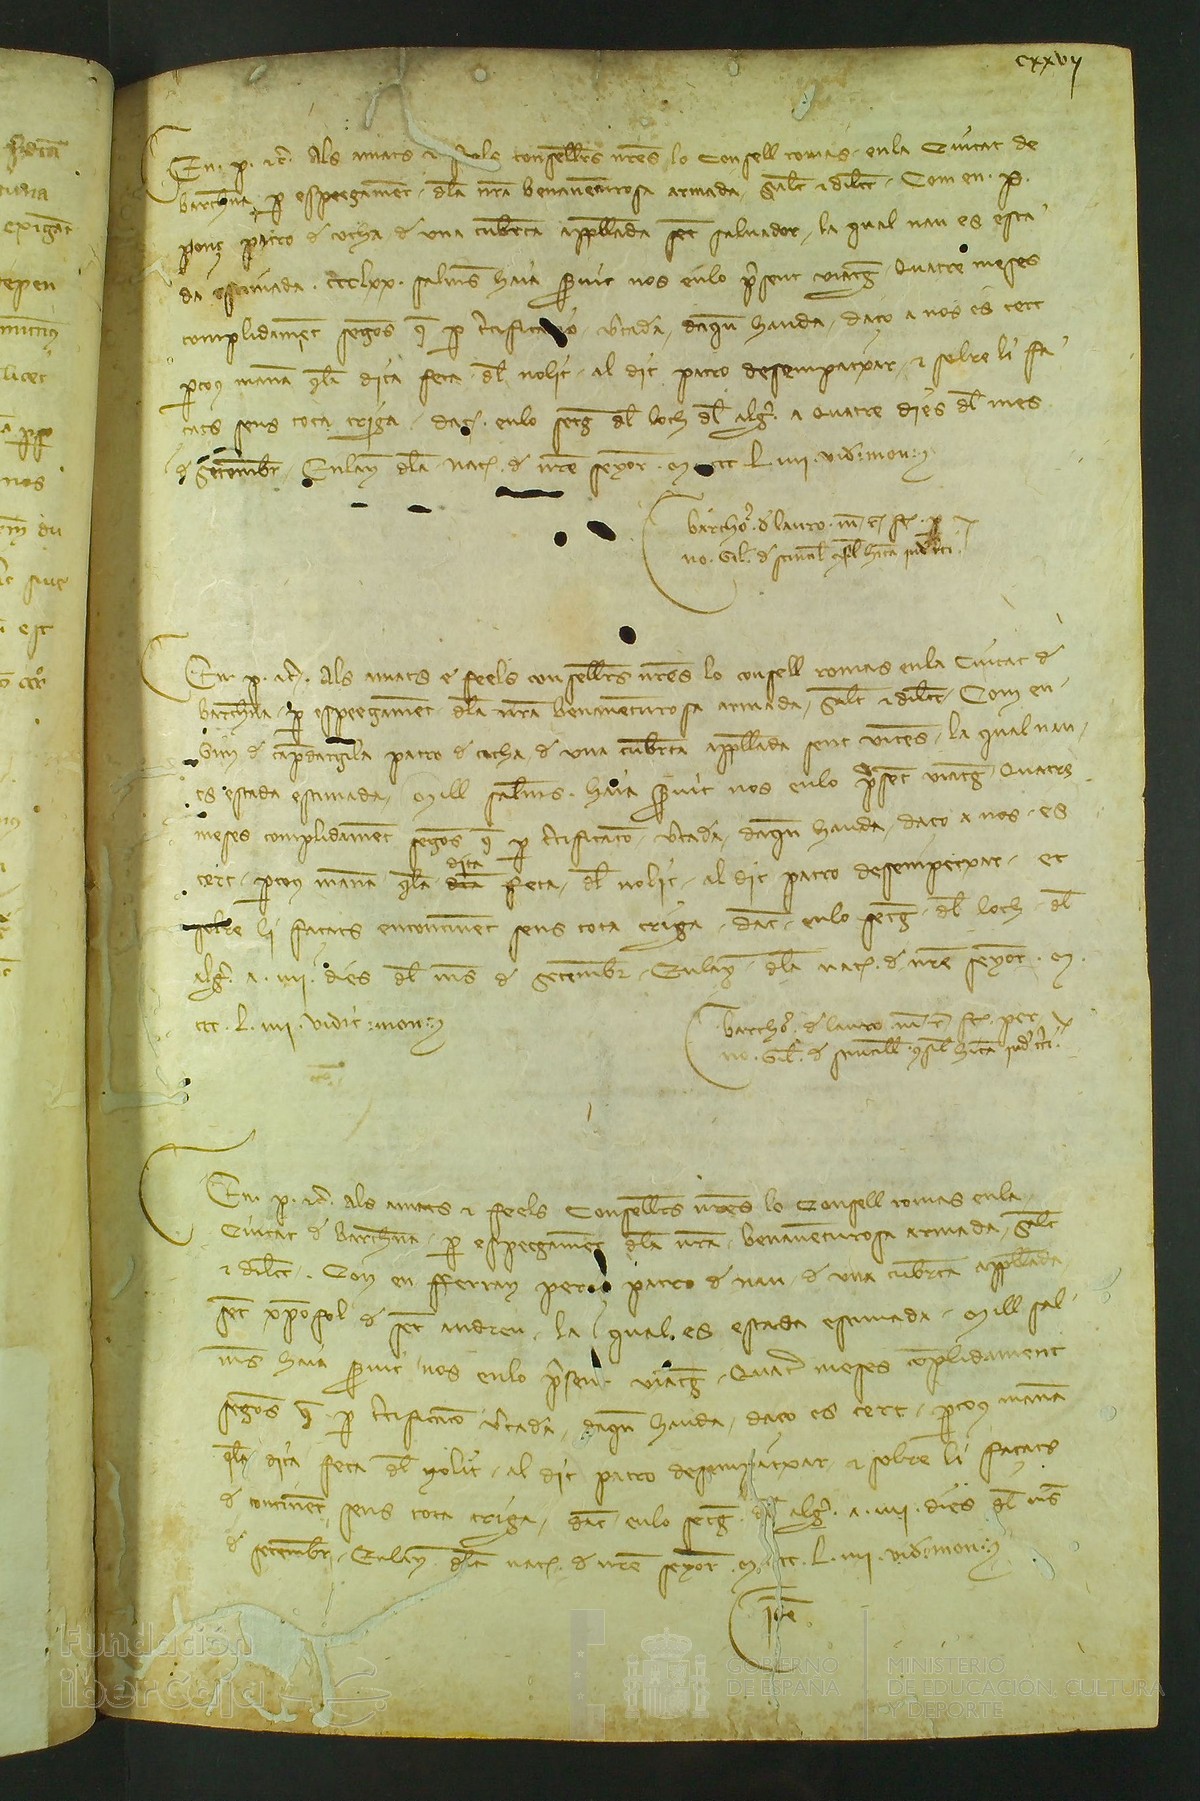 cxxvij
En p. etc. Als amats et feels consellers nostres lo Consell romas en la Ciutat de
barchna. per espeegament. dela nra benauenturosa armada. Salut et dileccio. Com en. p.
ponç patro de vcha de vna cuberta appellada sent saluador. la qual nau es esta
da estimada. cccclxx. salmes haia seruit nos en lo present viatge. Quatre meses
complidament segons que per certificacio. vertadera. daquen hauda. daço a nos es cert
perçous manam quela dita feta. del nolit. al dit patro desempatxar. et sobre li fa
çats sens tota triga. dat. en lo setge del loch del alguer. a Quatre dies del mes
de Setembre. En lany dela nat. de nre senyor. M ccc L. iiii. vidit: mon:
bartho. de lauro. m. r. fc. p
no. Gil. de
En. p. etc. Als amats e feels consellers nres lo consell romas en la Ciutat de
barchna. per espeegament. dela nra benauenturosa armada. Salut et dileccio. Com en
patro de cocha, de vna cuberta appellada sent vicens. la qual nau
es estada estimada. Mill salmes. haia seruit nos en lo present viatge Quatre
meses complidament segons que per certificacio. vertadera. daquen hauda. daço a nos. es
cert. perçous manam quela dita feta. del nolit. al dit patro desempetxar. et
sobre li façats encontinent sens tota triga. dat. en lo setge. del loch. del
alguer. a. iiii. dies del mes de Setembre. En lany. dela nat. de nre senyor. M.
ccc. L. iiii. vidit: mon:
bartho. de lauro. m. r. fc. per
no. Gil. de
En. p. etc. Als amats et feels Consellers nres lo Consell romas en la
Ciutat de barchna. per espeegament dela nra. benauenturosa armada. Salut
et dileccio. Com en fferran patro de nau. de vna cuberta appellada
sent xpofol de sent andreu. la qual. es estada estimada. Mill sal
mes haia seruit nos en lo present viatge. Quatre meses complidament
segons que per certificacio vertadera. daquen hauda. daço es cert. perçous manam
quela dita feta del nolit. al dit patro desempatxar. et sobre li façats
de continent sens tota triga. dat en lo setge. del alguer. a. iiii. dies del mes
de setembre. En lany. dela nat. de nre senyor. M. ccc. L. iiii. vidit: mon:
idem
Fundación
iberCaja
GOBIERNO
DE ESPAÑA
MINISTERIO
DE EDUCACIÓN, CULTURA
Y DEPORTE